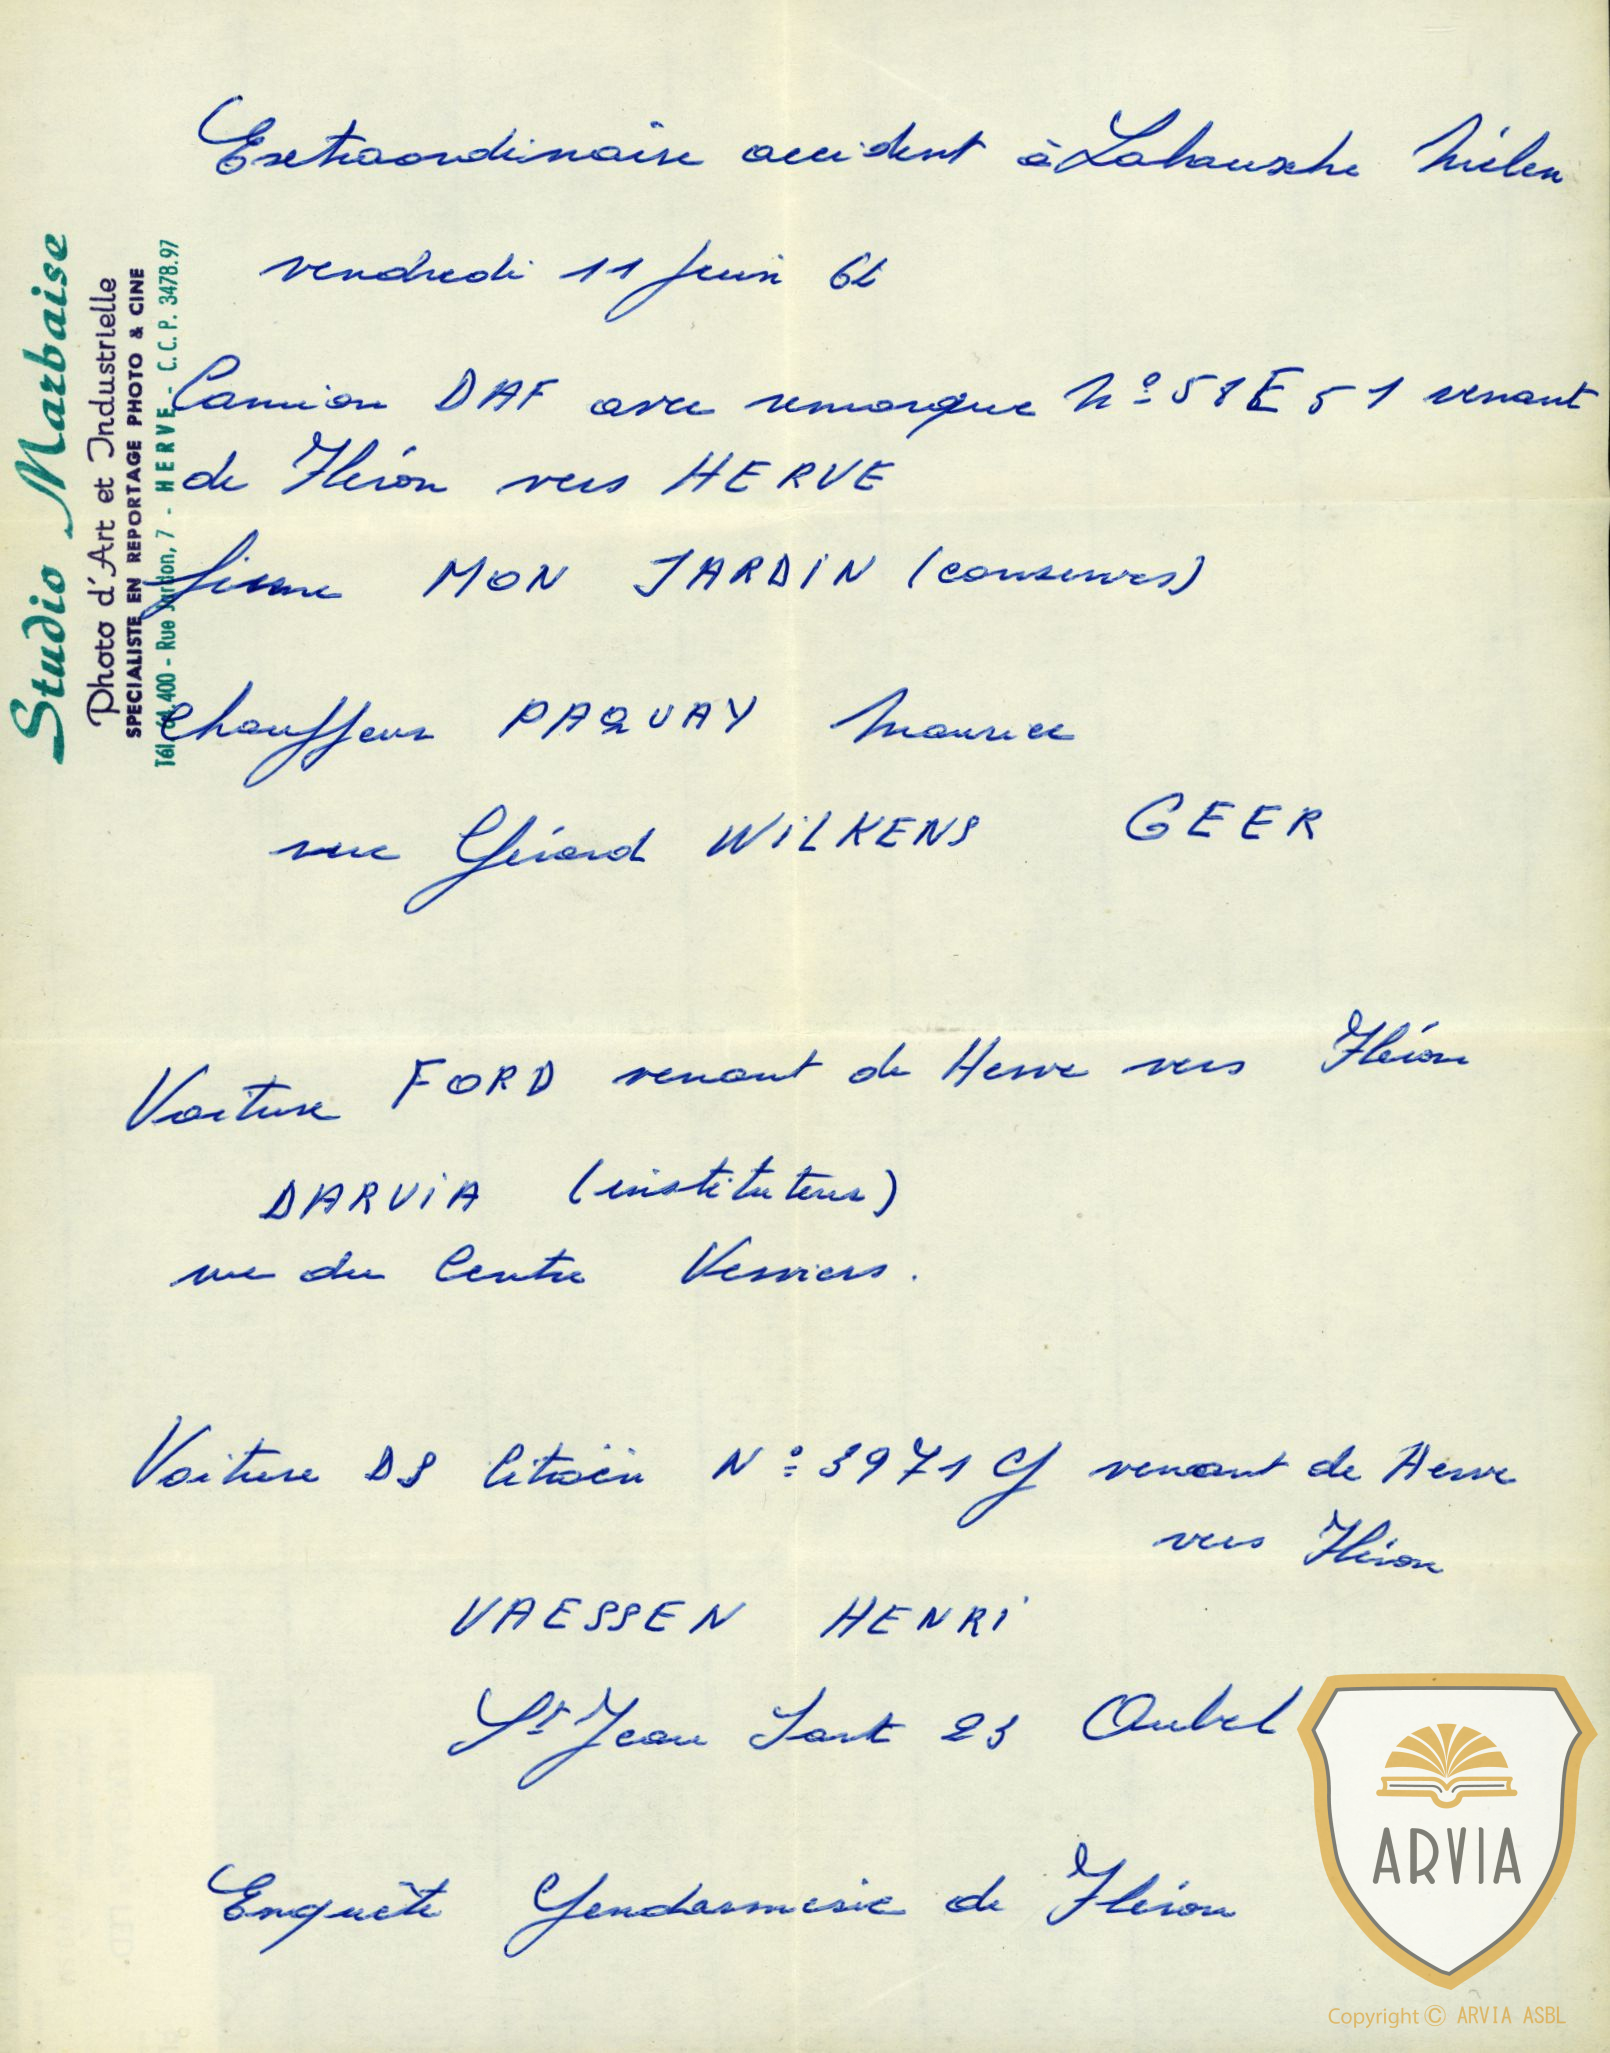 Extraordinaire accident à Labouxhe Mélen
vendredi 11 Juin
Camion DAF avec remorque N° 51 venant
de Fléron vers HERVE
firme MON JARDIN (conserves)
Chauffeur PAQUAY Maurice
rue Gérard WiLKENS GEER
Voiture FORD venant de Herve vers Fléron
DARViA (instituteur)
rue du Centre Verviers.
Voiture DS Citroën N° 3971 venant de Herve
vers Fléron
VAESSEN HENRi
St Jean Sart 23 Aubel
Enquête Gendarmerie de Fléron
Studio Marbaise
Photo d'Art et Industrielle
SPECIALISTE EN REPORTAGE PHOTO & CINE
Tél. 64.400 - Rue Jardon, 7 - HERVE - C.C.P. 3478.97
ARVIA
Copyright © ARVIA ASBL